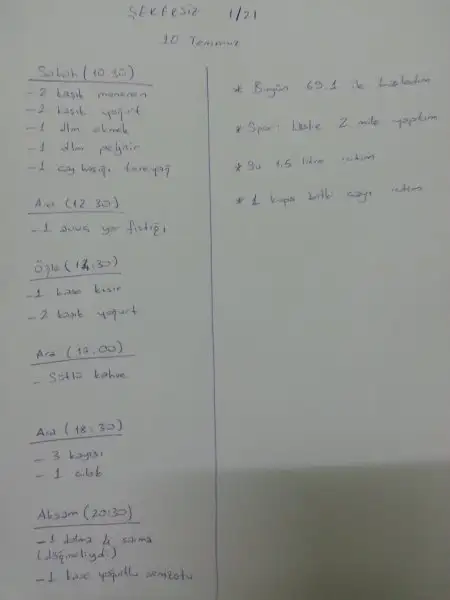 ŞEKERSİZ 1/21
10 Temmuz
Sabah (10.30)
- 2 kaşık menemen
- 2 kaşık yoğurt
- 1 dlm ekmek
- 1 dlm peynir
- 1 çay kaşığı tereyağ
Ara (12.30)
- 1 avuç yer fıstığı
Öğle (14:30)
- 1 kase kısır
- 2 kaşık yoğurt
Ara (17.00)
- Sütlü kahve
Ara (18:30)
- 3 kayısı
- 1 çilek
Akşam (20:30)
- 1 dolma 4 sarma
(düğmeliydi)
- 1 kase yoğurtlu semizotu
* Bugün 69.1 ile başladım
* Spor: Leslie 2 mile yaptım
* Su 1.5 litre içtim
* 1 kupa bitki çayı içtim